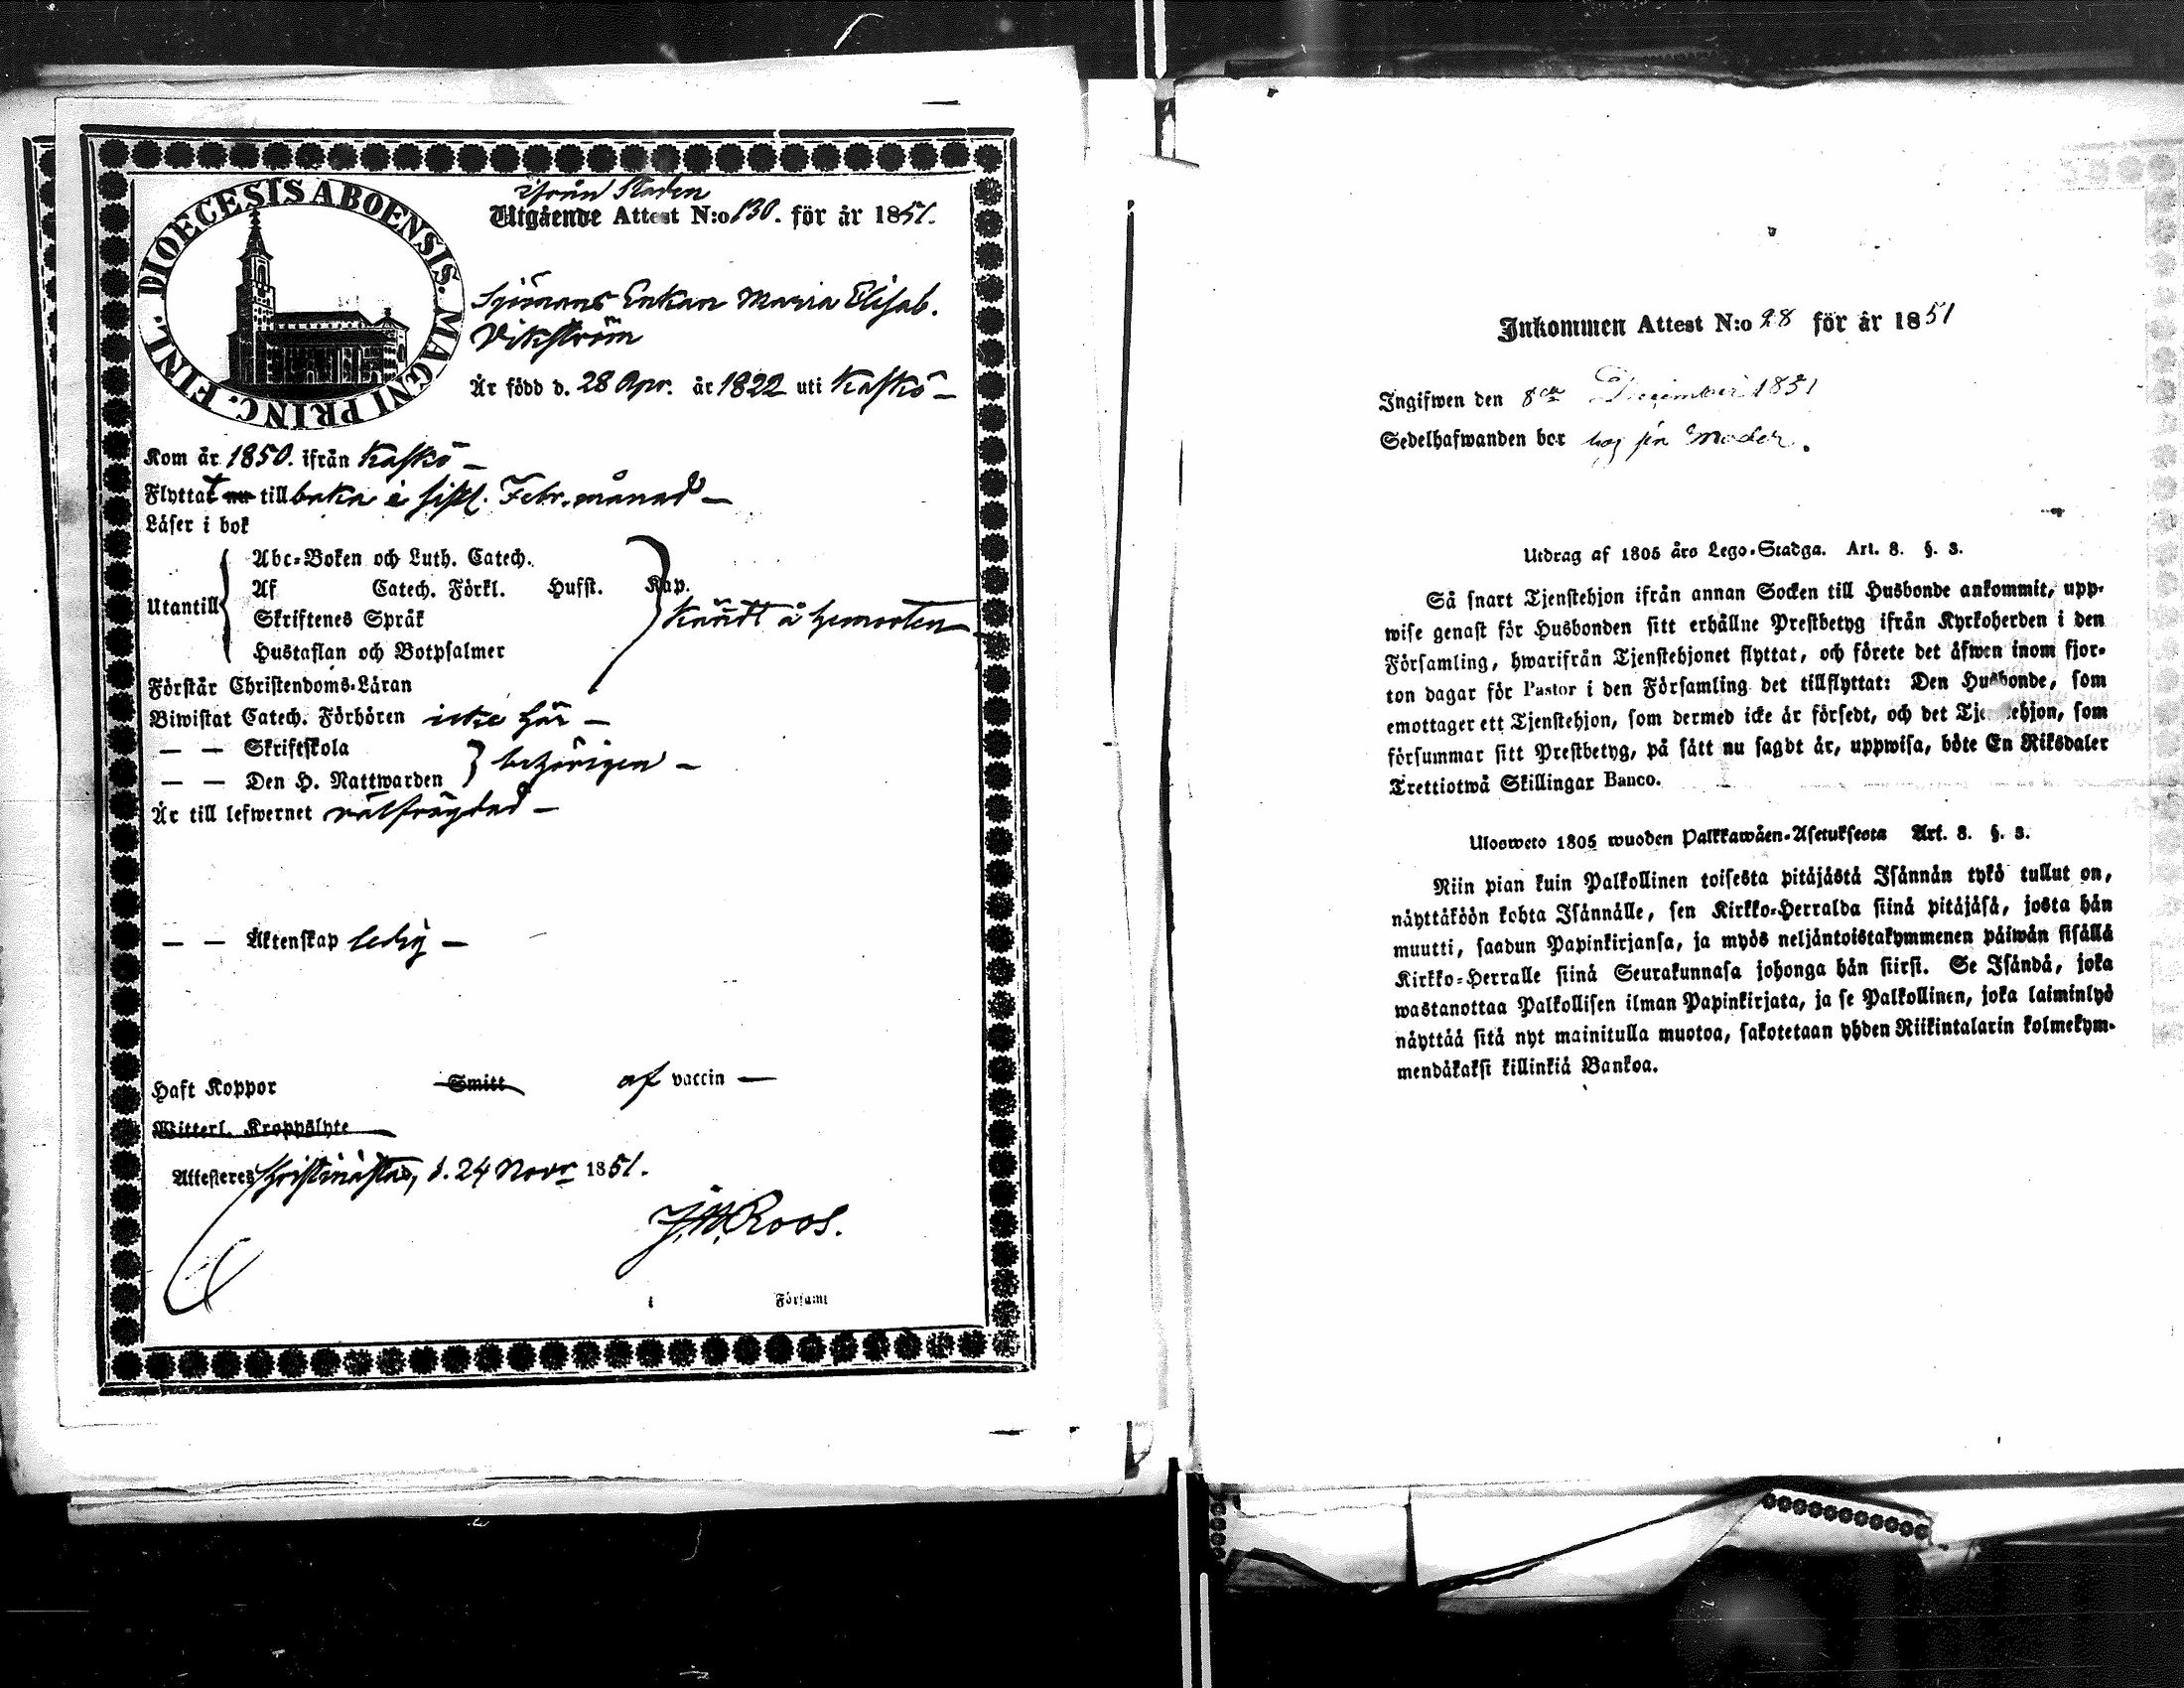 DIOECESIS ABOENSIS. MAGNI PRINC. FINL.
ifrån Staden
Utgående Attest N:o 130. för år 1851.
Sjömans Enkan Maria Elisab.
Vikström
Är född d. 28 Apr. år 1822 uti Kaskö –
Kom år 1850. ifrån Kaskö –
Flyttat nu tillbaka i sistl. Febr. månad –
Läser i bok
Abc-Boken och Luth. Catech.
Utantill
Af Catech. Förkl. Husst. Kap.
Skriftenes Språk
Hustaflan och Botpsalmer
Kändt å hemorten
Förstår Christendoms-Läran
Biwistat Catech. Förhören icke här –
— — Skriftskola
— — Den H. Nattwarden
behörigen –
Är till lefwernet välfrägdad –
— — Äktenskap ledig –
Haft Koppor Smitt af vaccin —
Witterl. Kroppslyte
Attesteres Christinæstad, d. 24 Novr 1851.
J. W. Roos.
i Församl
Inkommen Attest N:o 28 för år 1851
Ingifwen den 8de December 1851
Sedelhafwanden bor hos sin Moder.
Utdrag af 1805 års Lego-Stadga. Art. 8. §. 3.
Så snart Tjenstehjon ifrån annan Socken till Husbonde ankommit, upp-
wise genast för Husbonden sitt erhållne Prestbetyg ifrån Kyrkoherden i den
Församling, hwarifrån Tjenstehjonet flyttat, och förete det äfwen inom fjor-
ton dagar för Pastor i den Församling det tillflyttat: Den Husbonde, som
emottager ett Tjenstehjon, som dermed icke är försedt, och det Tjenstehjon, som
försummar sitt Prestbetyg, på sätt nu sagdt är, uppwisa, böte En Riksdaler
Trettiotwå Skillingar Banco.
Ulosweto 1805 wuoden Palkkawäen-Asetuksesta Art. 8. §. 3.
Niin pian kuin Palkollinen toisesta pitäjästä Isännän tykö tullut on,
näyttäköön kohta Isännälle, sen Kirkko-Herralda siinä pitäjäsä, josta hän
muutti, saadun Papinkirjansa, ja myös neljäntoistakymmenen päiwän sisällä
Kirkko-Herralle siinä Seurakunnasa johonga hän siirsi. Se Isändä, joka
wastanottaa Palkollisen ilman Papinkirjata, ja se Palkollinen, joka laiminlyö
näyttää sitä nyt mainitulla muotoa, sakotetaan yhden Riikintalarin kolmekym-
mendäkaksi killinkiä Bankoa.